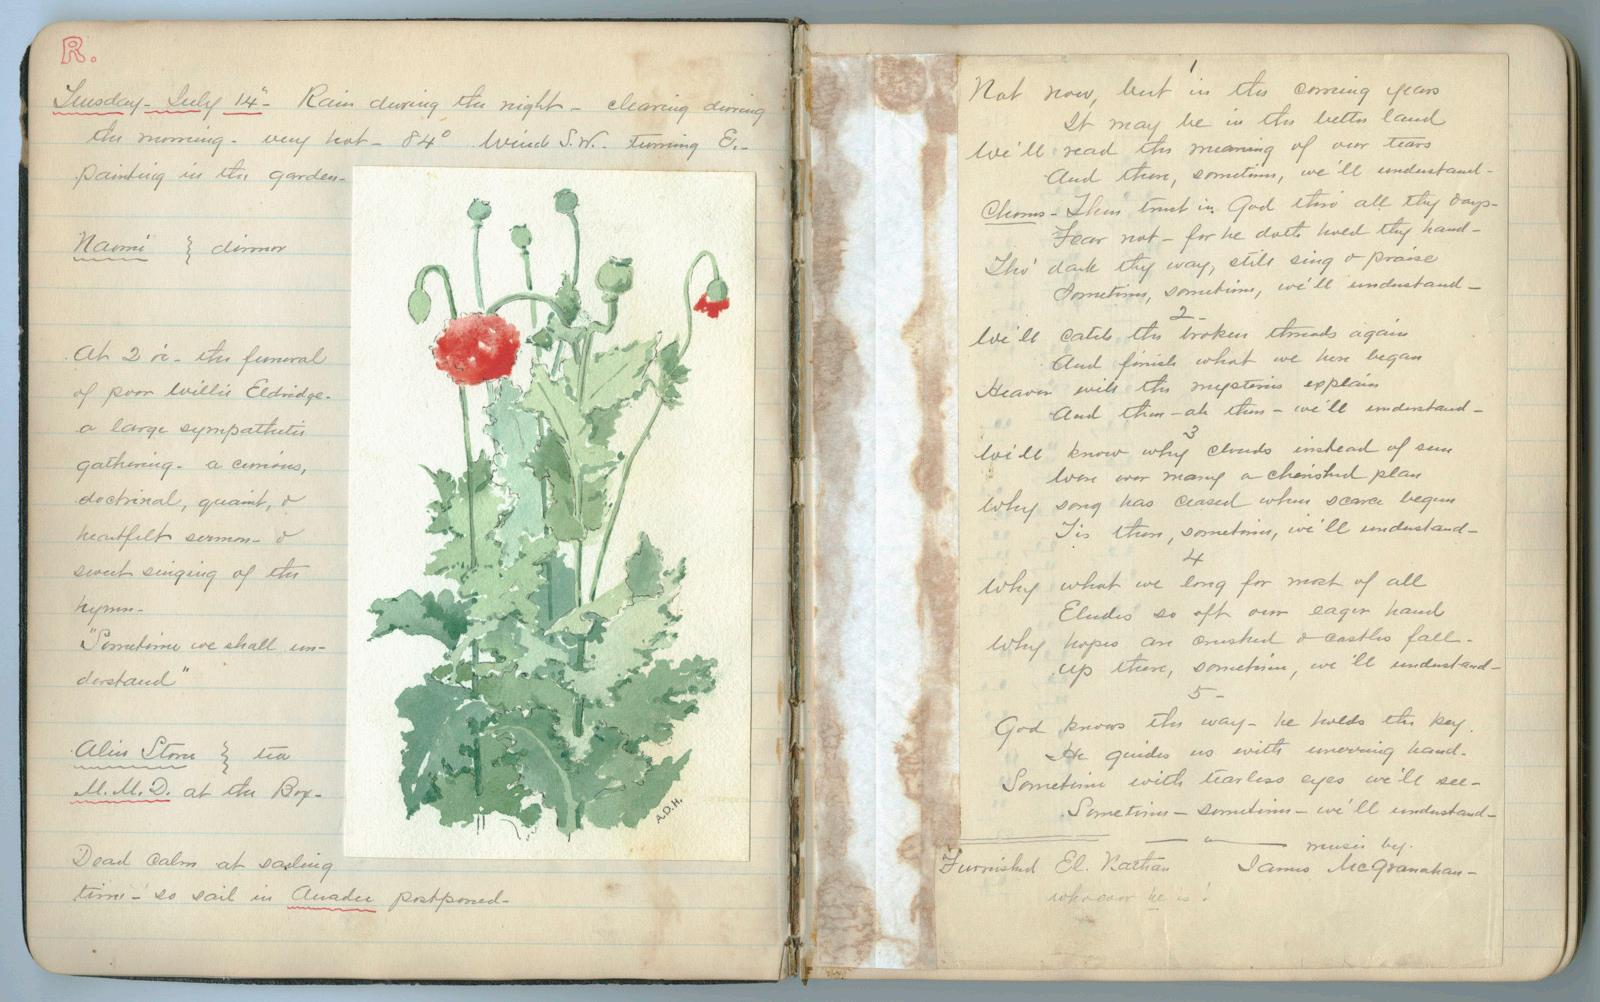 R.
Tuesday - July 14" - Rain during the night - clearing during
the morning - very hot - 84° Wind S.W. - turning E. -
painting in the garden -
Naomi } dinner
At 2 o'c - the funeral
of poor Willis Eldridge -
a large sympathetic
gathering - a curious,
doctrinal, quaint, &
heartfelt sermon - &
sweet singing of the
hymn -
"Sometime we shall un-
derstand"
Alice Stone } tea
M.M.D. at the Box -
Dead calm at sailing
time - so sail in postponed -
A.D.H.
1
Not now, but in the coming years
It may be in the better land
We'll read the meaning of our tears
And there, sometime, we'll understand -
Chorus - Then trust in God thro' all thy days -
Fear not - for he doth hold thy hand -
Tho' dark thy way, still sing & praise
Sometime, sometime, we'll understand -
2 -
We'll catch the broken threads again
And finish what we here began
Heaven will the mysteries explain
And then - ah then - we'll understand -
3
We'll know why clouds instead of sun
Were over many a cherished plan
Why song has ceased when scarce begun
'Tis there, sometime, we'll understand -
4
Why what we long for most of all
Eludes so oft our eager hand
Why hopes are crushed & castles fall -
Up there, sometime, we'll understand -
5 -
God knows the way - he holds the key.
He guides us with unerring hand -
Sometime with tearless eyes we'll see -
Sometime - sometime - we'll understand -
music by.
Furnished El. Nathan James McGranahan -
whoever he is!